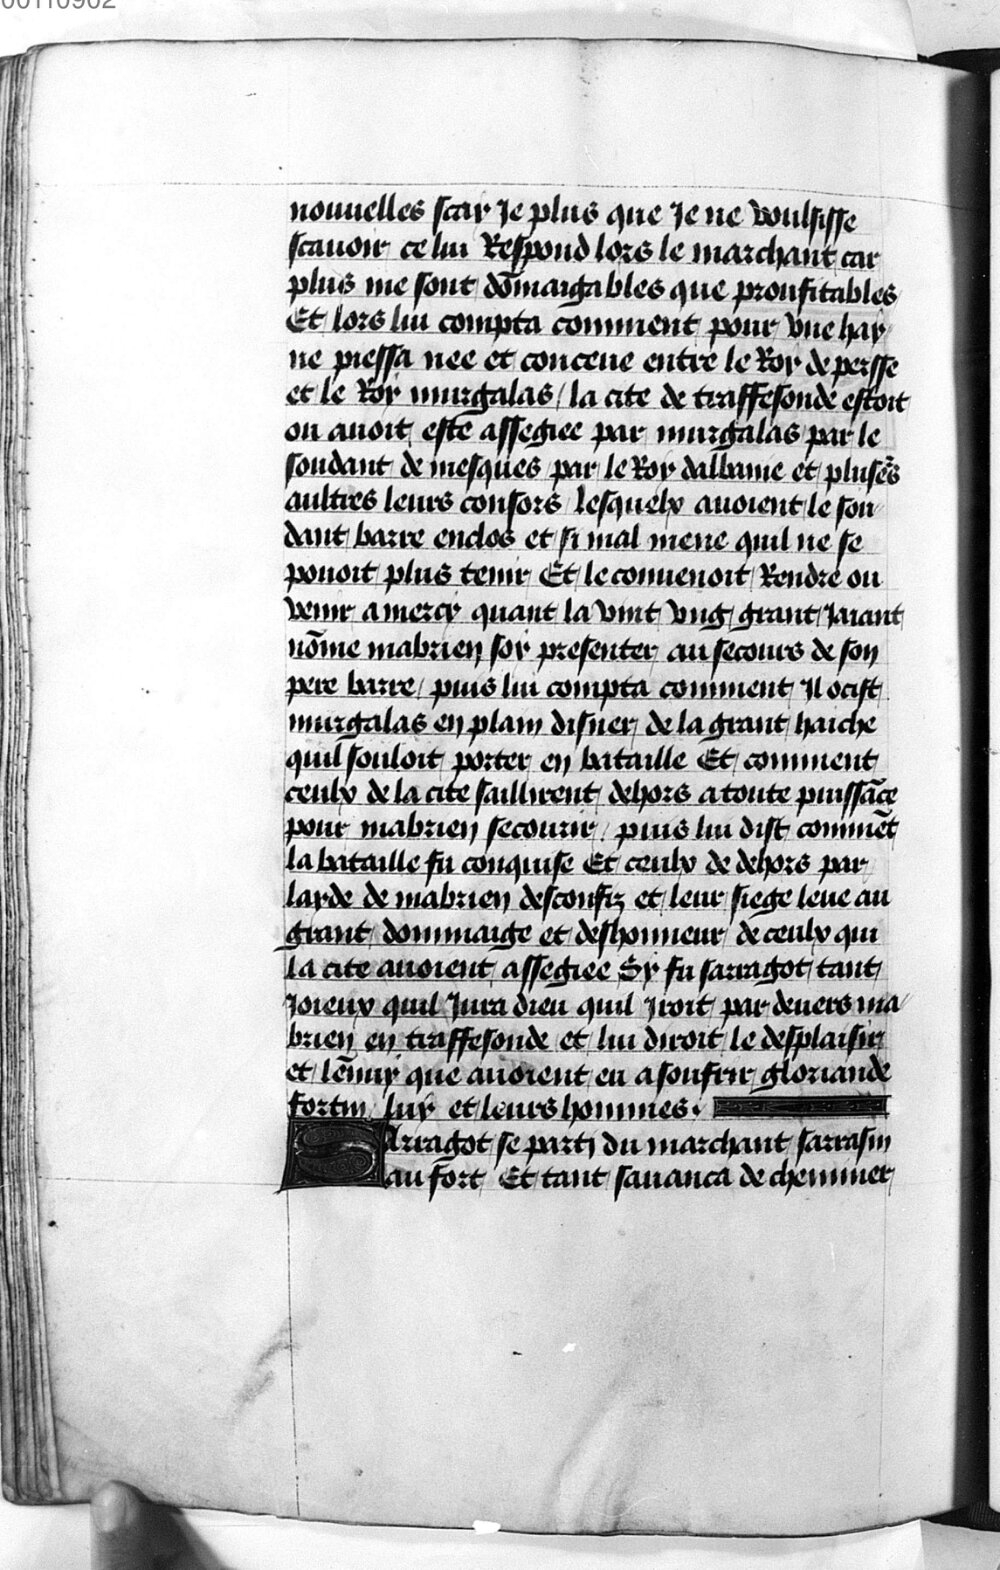 00110902
nouuelles scay Je plus que Je ne voulsisse
scauoir ce lui Respond lors le marchant car
plus me sont dōmaigables que proufitables
Et lors lui compta comment pour vne hay
ne piessa nee et conceue entre le Roy de persse
et le Roy murgalas / la cite de traffesonde estoit
ou auoit este assegiee par murgalas par le
soudant de mesques par le Roy dalbanie et pluseᵣs
aultres leurs consors lesquelx auoient le sou
dant barre enclos et si mal mene quil ne se
pouoit plus tenir Et le conuenoit Rendre ou
venir a mercy quant la vint vng grant Jaiant
nōme mabrien soy presenter au secours de son
pere barre / puis lui compta comment Il ocist
murgalas en plain disner de la grant haiche
quil souloit porter en bataille Et comment
ceulx de la cite saillirent dehors a toute puissāce
pour mabrien secourir / puis lui dist commēt
la bataille fu conquise Et ceulx de dehors par
layde de mabrien desconfiz et leur siege leue au
grant dommaige et deshonneur de ceulx qui
la cite auoient assegiee Sy fu sarragot tant
Joieux quil Jura dieu quil Jroit par deuers ma
brien en traffesonde et lui diroit le desplaisir
et lēnuy que auoient eu a soufrir gloriande
fortin luy et leurs hommes.
Sarragot se parti du marchant sarrasin
au fort Et tant sauanca de cheminer